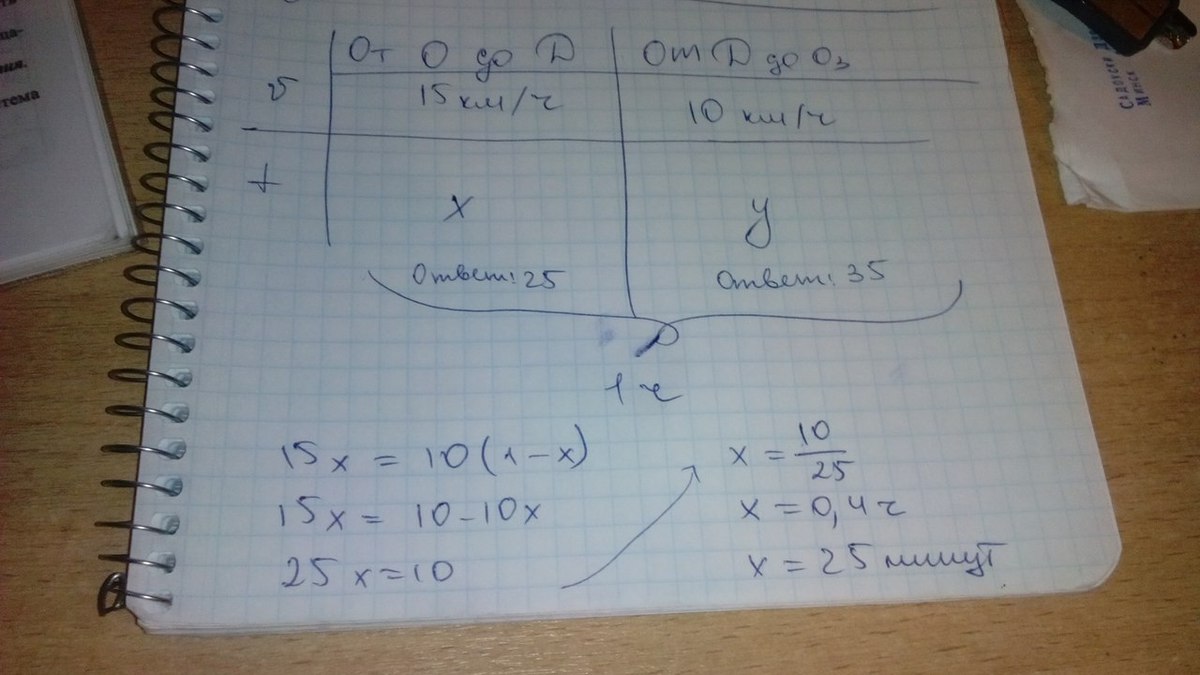 От О до D
От D до Оз
v
15 км/ч
10 км/ч
t
x
y
Ответ: 25
Ответ: 35
1 ч
15x = 10(1-x)
15x = 10-10x
25x=10
x = 10/25
x = 0,4ч
x = 25 минут
тема
Минск